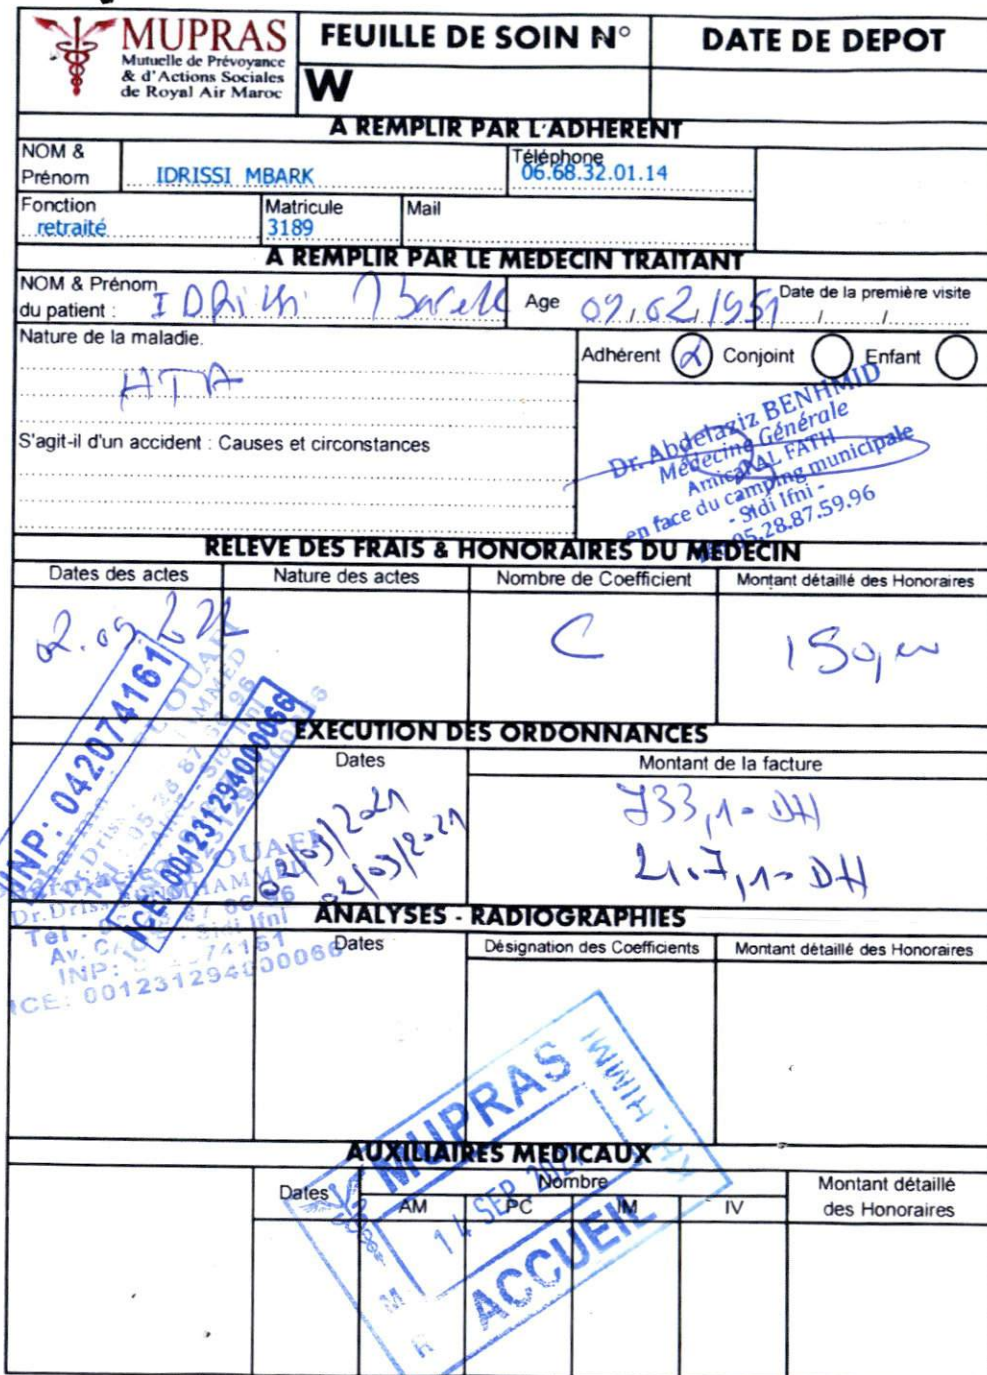 MUPRAS
Mutuelle de Prévoyance
& d'Actions Sociales
de Royal Air Maroc
FEUILLE DE SOIN N°
W
DATE DE DEPOT
A REMPLIR PAR L'ADHERENT
NOM &
Prénom
IDRISSI MBARK
Téléphone
06.68.32.01.14
Fonction
retraité
Matricule
3189
Mail
A REMPLIR PAR LE MEDECIN TRAITANT
NOM & Prénom
du patient :
Age
Date de la première visite
Nature de la maladie.
HTA
Adhérent
Conjoint
Enfant
S'agit-il d'un accident : Causes et circonstances
Dr. Abdelaziz BENHMID
Médecine Générale
Amical AL FATH
en face du camping municipale
- Sidi Ifni -
05.28.87.59.96
RELEVE DES FRAIS & HONORAIRES DU MEDECIN
Dates des actes
Nature des actes
Nombre de Coefficient
Montant détaillé des Honoraires
C
INP: 042074161
ICE: 001231294000066
EXECUTION DES ORDONNANCES
Dates
Montant de la facture
02/09/2021
02/09/2021
733,10 DH
217,10 DH
INP: 74161
ICE: 001231294000066
ANALYSES - RADIOGRAPHIES
Dates
Désignation des Coefficients
Montant détaillé des Honoraires
MUPRAS
14 SEP 2021
ACCUEIL
AUXILIAIRES MEDICAUX
Dates
Nombre
AM
PC
IM
IV
Montant détaillé
des Honoraires